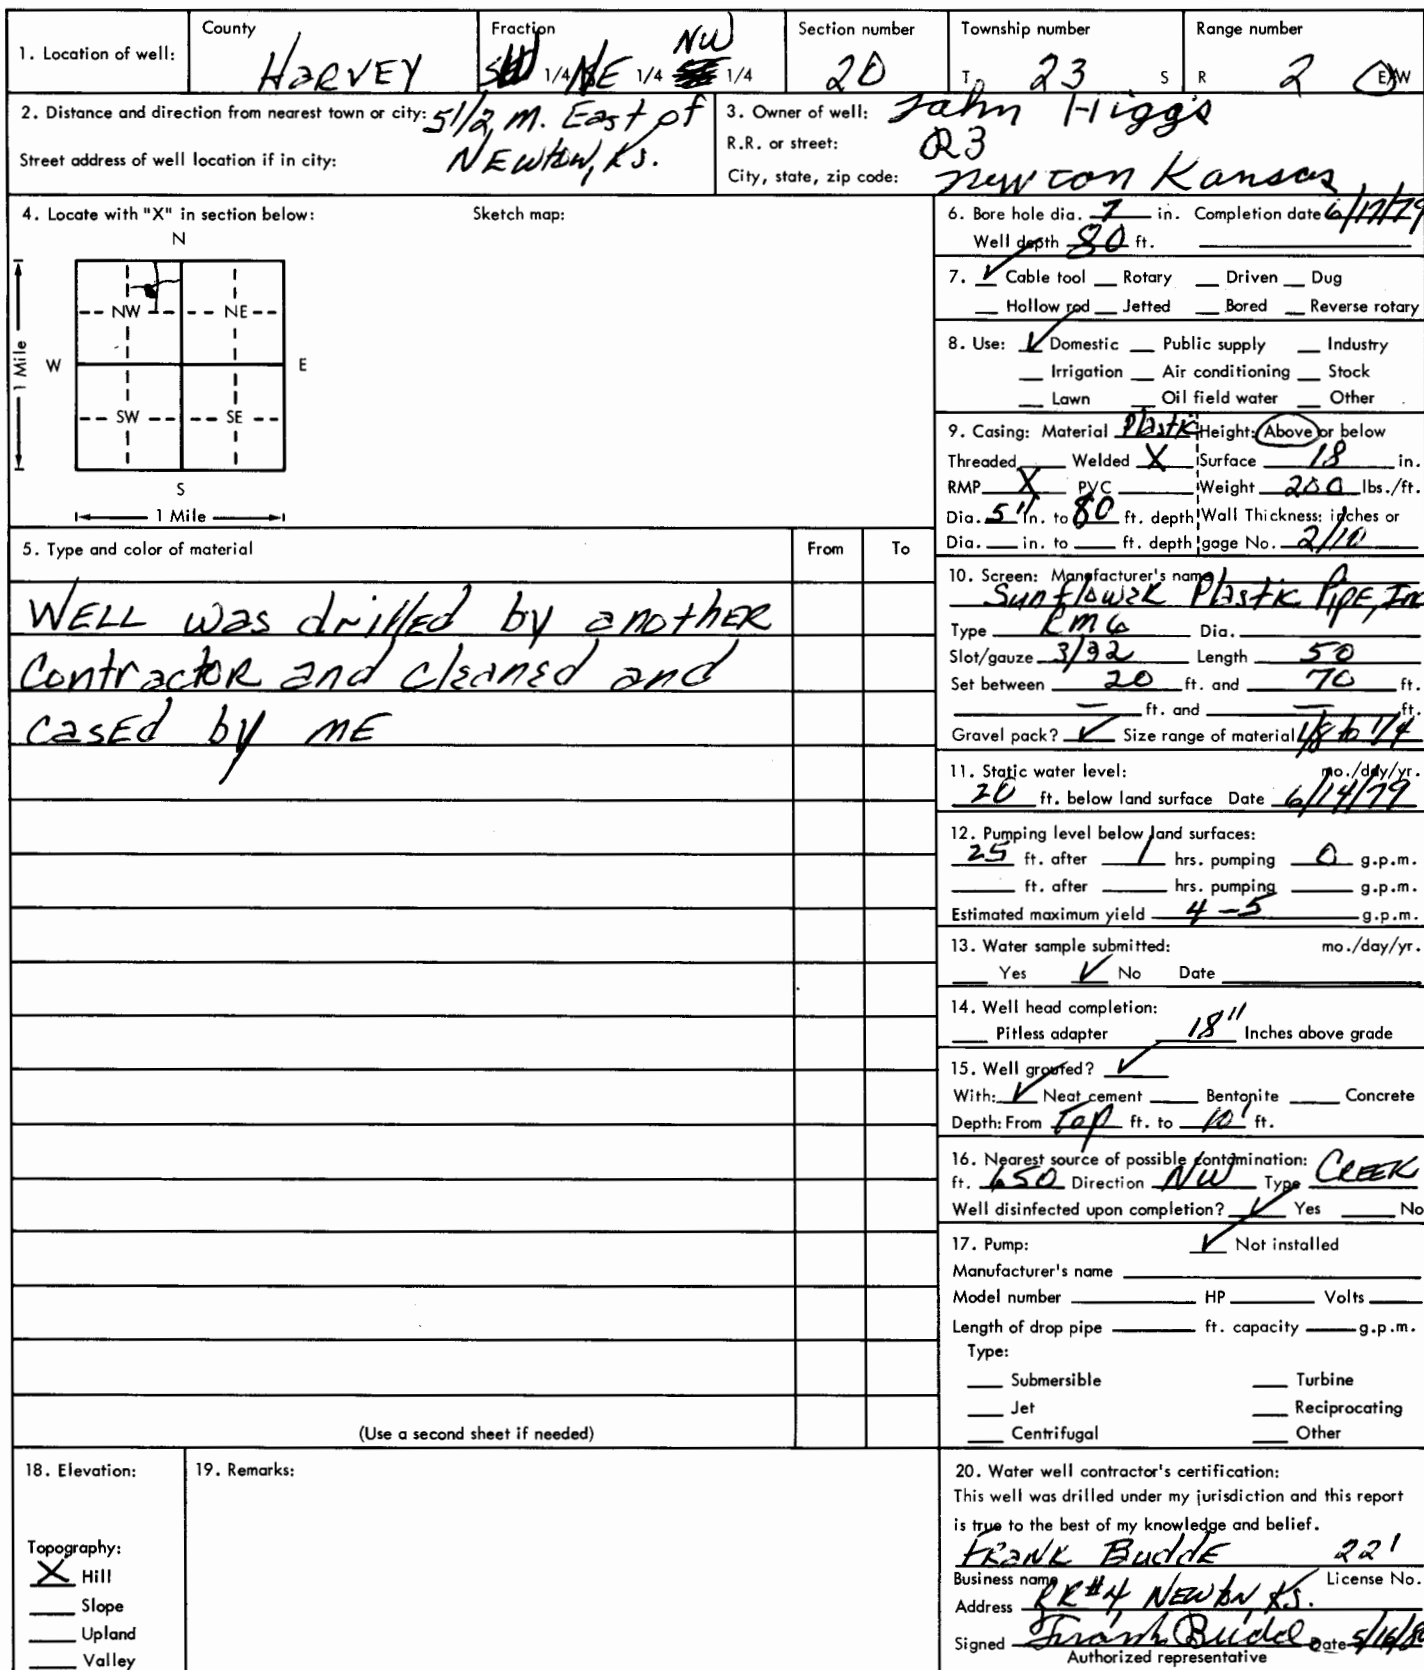 1. Location of well: County HARVEY Fraction SW 1/4 NE 1/4 NW 1/4 Section number 20 Township number T 23 S Range number R 2 E/W
2. Distance and direction from nearest town or city: 5 1/2 m. East of
Street address of well location if in city: NEWtoN, Ks.
3. Owner of well: John Higgs
R.R. or street: R3
City, state, zip code: Newton Kansas
4. Locate with "X" in section below: Sketch map:
N
NW NE
W E
1 Mile
SW SE
S
1 Mile
5. Type and color of material From To
WELL was drilled by another
contractor and cleaned and
casEd by ME
(Use a second sheet if needed)
6. Bore hole dia. 7 in. Completion date 6/17/79
Well depth 80 ft.
7. ✓ Cable tool __ Rotary __ Driven __ Dug
__ Hollow rod __ Jetted __ Bored __ Reverse rotary
8. Use: ✓ Domestic __ Public supply __ Industry
__ Irrigation __ Air conditioning __ Stock
__ Lawn __ Oil field water __ Other
9. Casing: Material Plastic Height: Above or below
Threaded __ Welded X Surface 18 in.
RMP X PVC __ Weight 200 lbs./ft.
Dia. 5" in. to 80 ft. depth Wall Thickness: inches or
Dia. __ in. to __ ft. depth gage No. 2/10
10. Screen: Manufacturer's name
SunflowER Plastic PipE, Inc
Type RMG Dia. __
Slot/gauze 3/32 Length 50
Set between 20 ft. and 70 ft.
— ft. and — ft.
Gravel pack? ✓ Size range of material 1/8 to 1/4
11. Static water level: mo./day/yr.
20 ft. below land surface Date 6/14/79
12. Pumping level below land surfaces:
25 ft. after 1 hrs. pumping 0 g.p.m.
__ ft. after __ hrs. pumping __ g.p.m.
Estimated maximum yield 4-5 g.p.m.
13. Water sample submitted: mo./day/yr.
__ Yes ✓ No Date __
14. Well head completion:
__ Pitless adapter 18" Inches above grade
15. Well grouted? ✓
With: ✓ Neat cement __ Bentonite __ Concrete
Depth: From Top ft. to 10' ft.
16. Nearest source of possible contamination:
ft. 650 Direction NW Type CREEK
Well disinfected upon completion? ✓ Yes __ No
17. Pump: ✓ Not installed
Manufacturer's name __
Model number __ HP __ Volts __
Length of drop pipe __ ft. capacity __ g.p.m.
Type:
__ Submersible __ Turbine
__ Jet __ Reciprocating
__ Centrifugal __ Other
18. Elevation:
Topography:
X Hill
__ Slope
__ Upland
__ Valley
19. Remarks:
20. Water well contractor's certification:
This well was drilled under my jurisdiction and this report
is true to the best of my knowledge and belief.
FRANK BuddE 221
Business name License No.
Address RR#4 NEWtoN Ks.
Signed Frank Budde Date 5/16/80
Authorized representative